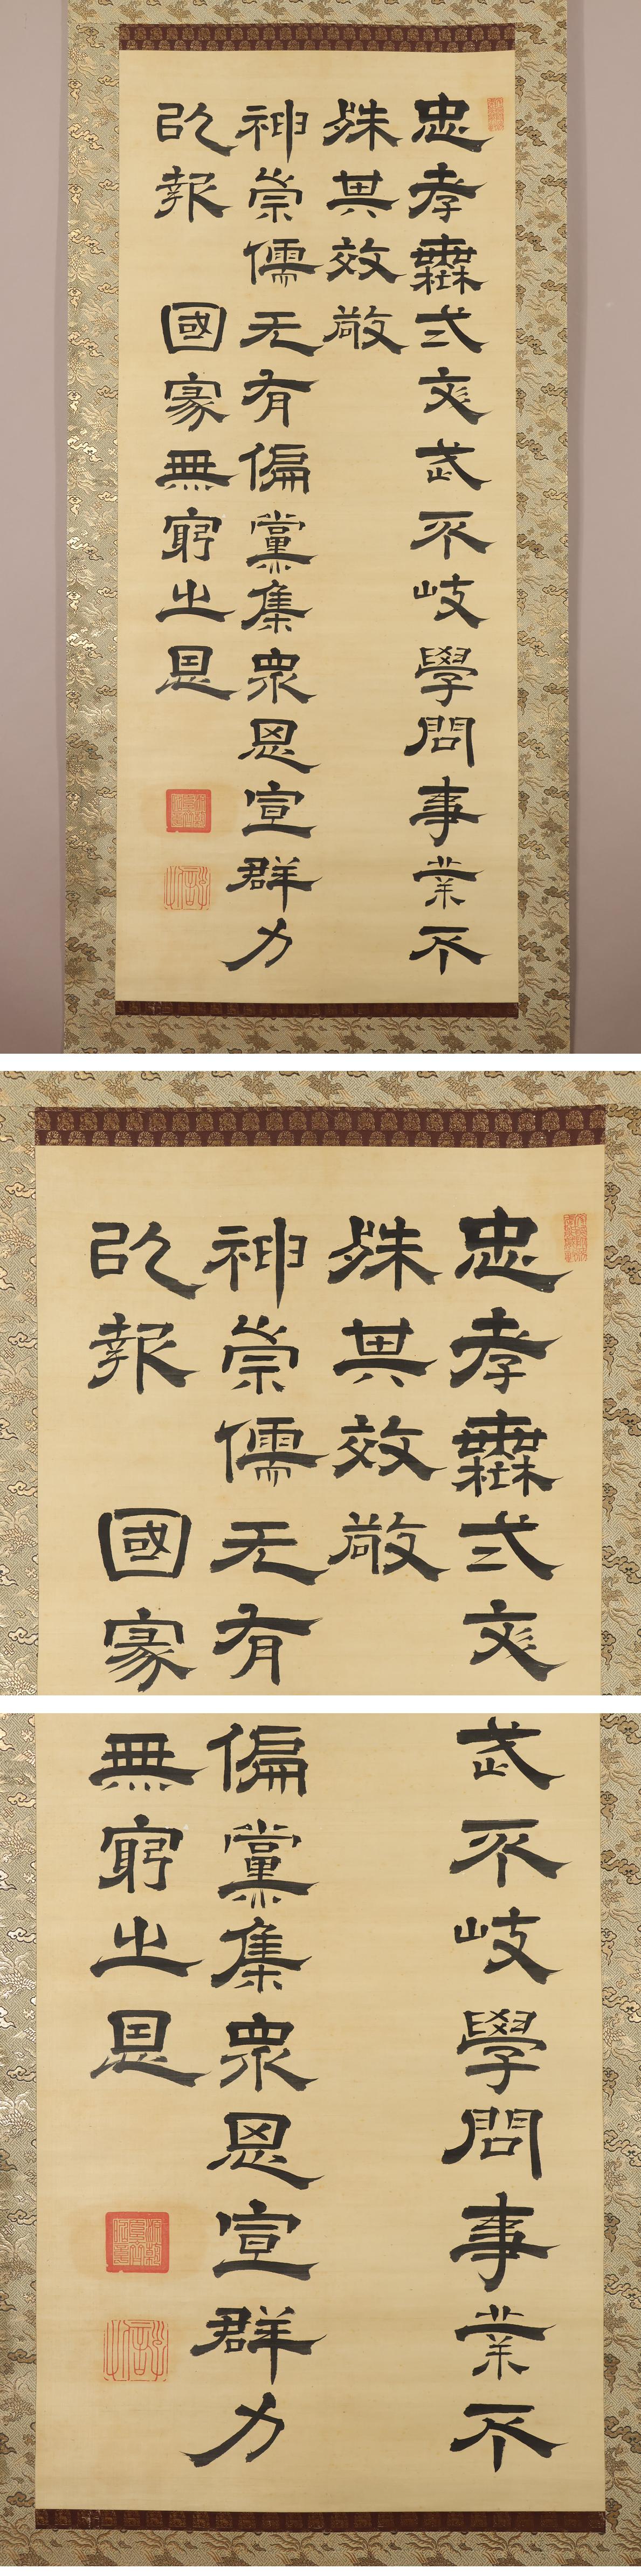 忠孝橆弍文武不岐學問事業不
殊其效敬
神崇儒无有偏黨集衆思宣群力
以報 國家無窮之恩
忠孝橆弍文
殊其效敬
神崇儒无有
以報 國家
武不岐學問事業不
偏黨集衆思宣群力
無窮之恩